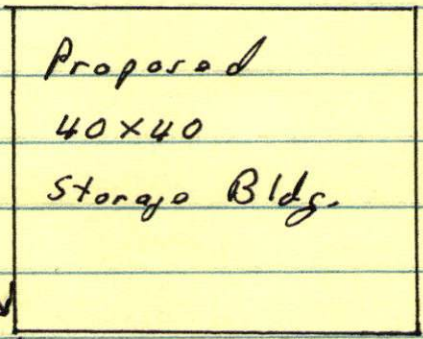 Proposed
40x40
Storage Bldg.